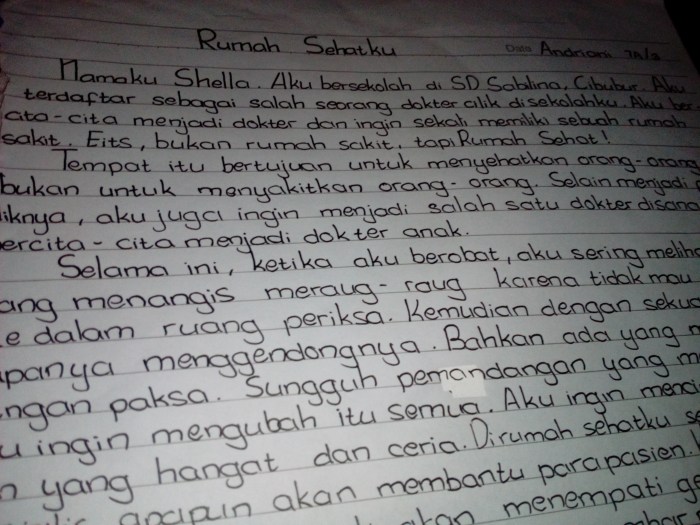 Rumah Sehatku
Date Andriani 7A/3
Namaku Shella. Aku bersekolah di SD Sablina, Cibubur. Aku
terdaftar sebagai salah seorang dokter cilik disekolahku. Aku ber
ata-cita menjadi dokter dan ingin sekali memiliki sebuah rumah
sakit. Eits, bukan rumah sakit, tapi Rumah Sehat!
Tempat itu bertujuan untuk menyehatkan orang-orang
bukan untuk menyakitkan orang-orang. Selain menjadi
iknya, aku juga ingin menjadi salah satu dokter disana
ercita-cita menjadi dokter anak.
Selama ini, ketika aku berobat, aku sering meliha
ang menangis meraug-raug karena tidak mau
e dalam ruang periksa. Kemudian dengan seku
apanya menggendongnya. Bahkan ada yang
ngan paksa. Sungguh pemandangan yang
u ingin mengubah itu semua. Aku ingin menc
n yang hangat dan ceria. Dirumah sehatku
apapun akan membantu parapasien.
akan menempati ge